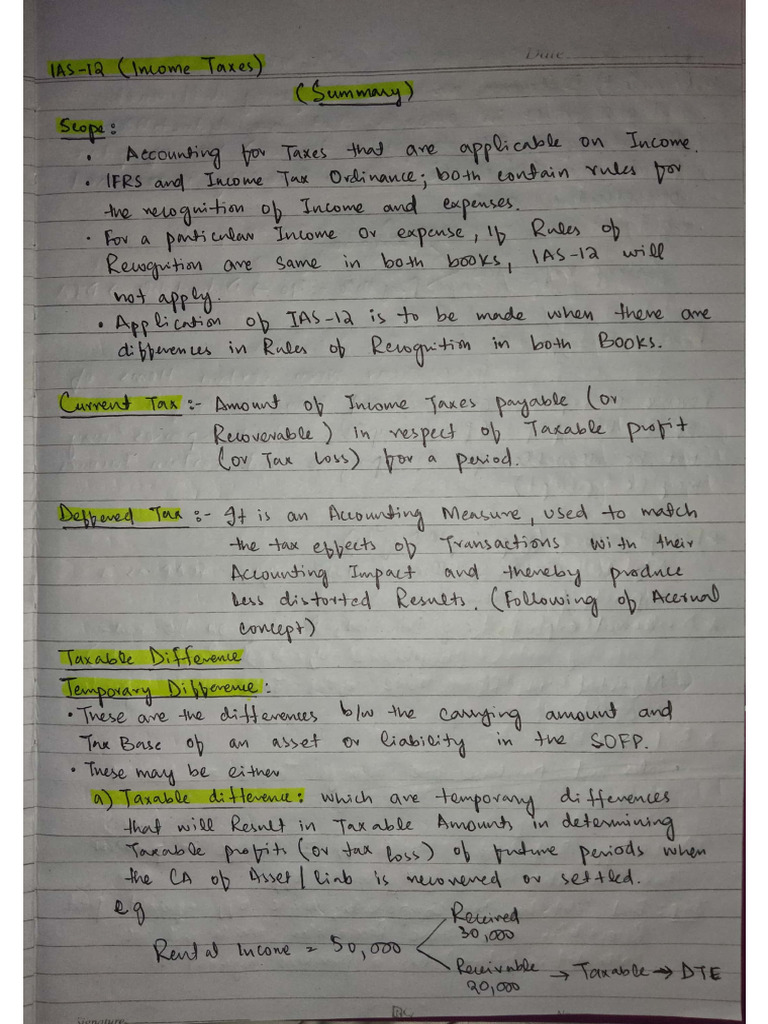 Date
IAS-12 (Income Taxes)
(Summary)
Scope:
• Accounting for Taxes that are applicable on Income.
• IFRS and Income Tax Ordinance; both contain rules for
the recognition of Income and expenses.
• For a particular Income or expense, If Rules of
Recognition are same in both books, IAS-12 will
not apply.
• Application of IAS-12 is to be made when there are
differences in Rules of Recognition in both Books.
Current Tax :- Amount of Income Taxes payable (or
Recoverable) in respect of Taxable profit
(or Tax Loss) for a period.
Deffered Tax :- It is an Accounting Measure, used to match
the tax effects of Transactions with their
Accounting Impact and thereby produce
Less distorted Results. (Following of Accrual
concept)
Taxable Difference
Temporary Difference:
• These are the differences b/w the carrying amount and
Tax Base of an asset or liability in the SOFP.
• These may be either
a) Taxable difference: which are temporary differences
that will Result in Taxable Amounts in determining
Taxable profits (or tax loss) of future periods when
the CA of Asset/Liab is recovered or settled.
eg
Received
30,000
Rental Income = 50,000
Receivable → Taxable → DTE
20,000
Signature
No